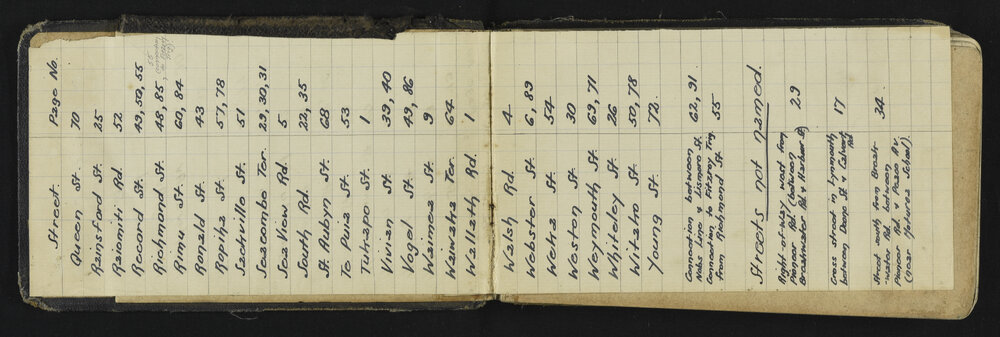 Street. Page No.
Queen St. 70
Rainsford St. 25
Raiomiti Rd. 52
Record St. 49, 50, 55
Richmond St. 48, 85
Rimu St. 60, 84
Ronald St. 43
Ropiha St. 57, 78
Sackville St. 51
Seacombe Ter. 29, 30, 31
Sea View Rd. 5
South Rd. 22, 35
St. Aubyn St. 68
Te Puia St. 53
Tukapo St. 1
Vivian St. 39, 40
Vogel St. 49, 86
Waimea St. 9
Waiwaka Ter. 64
Wallath Rd. 1
Walsh Rd. 4
Webster St. 6, 89
Weka St. 54
Weston St. 30
Weymouth St. 69, 71
Whiteley St. 26
Witako St. 50, 78
Young St. 72
Connection between
Webs Lane & Lismore St. 62, 91
Connection to Fitzroy
from Richmond St. 55
Streets not named.
Right-of-way west from
Pioneer Rd. (between
Breakwater Rd. & Harbour St) 29
Cross street in Lynmouth
between Deans St & Calvert
Rd. 17
Street south from Break-
water Rd. between
Pioneer Rd. & Paseo Av.
(near Moturoa School). 34